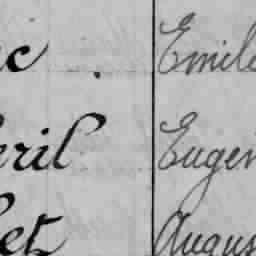 c Emile
ril Eugen
et Augus